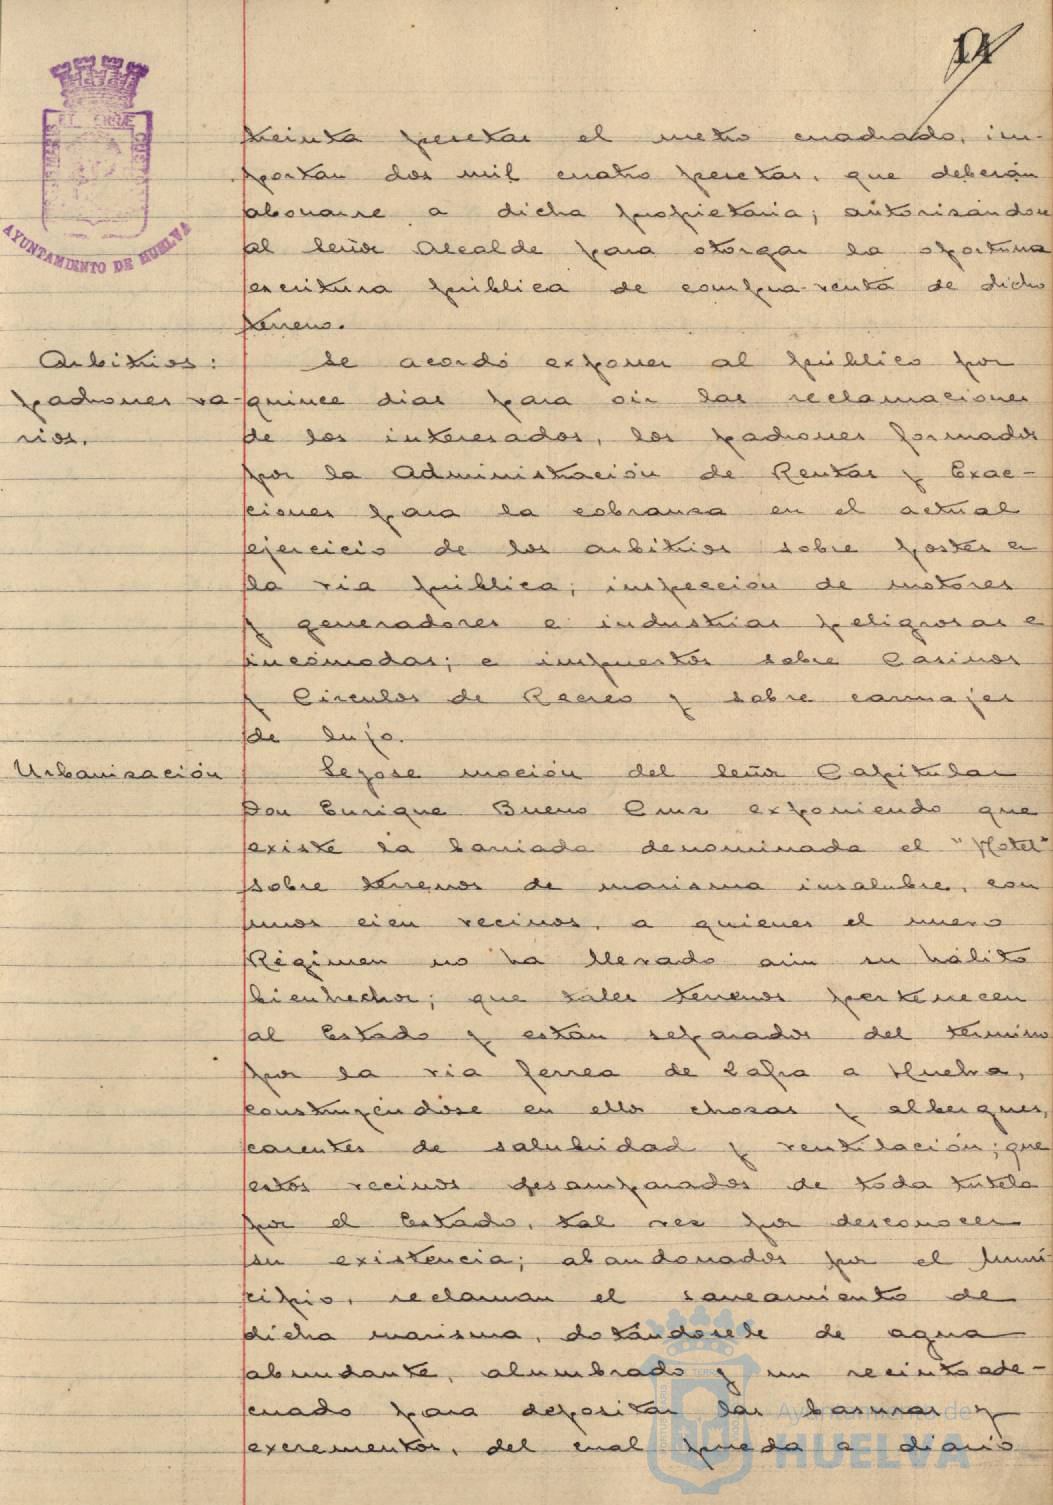 treinta pesetas el metro cuadrado, im-
portan dos mil cuatro pesetas, que deberán
abonarse a dicha propietaria; autorisándose
al Señor Alcalde para otorgar la oportuna
escritura pública de compra-venta de dicho
terreno.
Arbitrios:
padrones va-
rios.
Se acordó exponer al público por
quince dias para oir las reclamaciones
de los interesados, los padrones formados
por la Administración de Rentas y Exac-
ciones para la cobransa en el actual
ejercicio de los arbitrios sobre postes en
la via pública; inspección de motores
y generadores e industrias peligrosas e
incómodas; e impuestos sobre Casinos
y Circulos de Recreo y sobre carruajes
de lujo.
Urbanisación
Leyose moción del Señor Capitular
Don Enrique Bueno Crus exponiendo que
existe la barriada denominada el "Hotel"
sobre terrenos de marisma insalubre, con
unos cien vecinos, a quienes el nuevo
Régimen no ha llevado aún su hálito
bienhechor; que tales terrenos pertenecen
al Estado y están separados del termino
por la via ferrea de Zafra a Huelva,
construyéndose en ellos chosas y albergues,
carentes de salubridad y ventilación; que
estos vecinos desamparados de toda tutela
por el Estado, tal ves por desconocer
su existencia; abandonados por el Muni-
cipio, reclaman el saneamiento de
dicha marisma, dotándosele de agua
abundante, alumbrado y un recinto ade-
cuado para depositar las basuras y
excrementos, del cual pueda a diario
AYUNTAMIENTO DE HUELVA
Ayuntamiento de
HUELVA